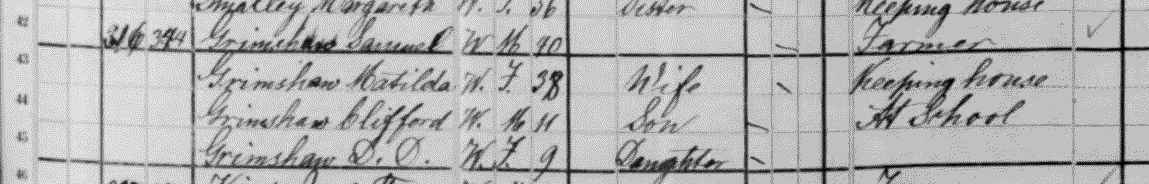 42 Smalley Margareth W. F. 36 Sister Keeping house
43 316 Grimshaw Samuel W M 40 Farmer
44 Grimshaw Matilda W. F. 38 Wife Keeping house
45 Grimshaw Clifford W. M 11 Son At School
46 Grimshaw D. D. W. F. 9 Daughter